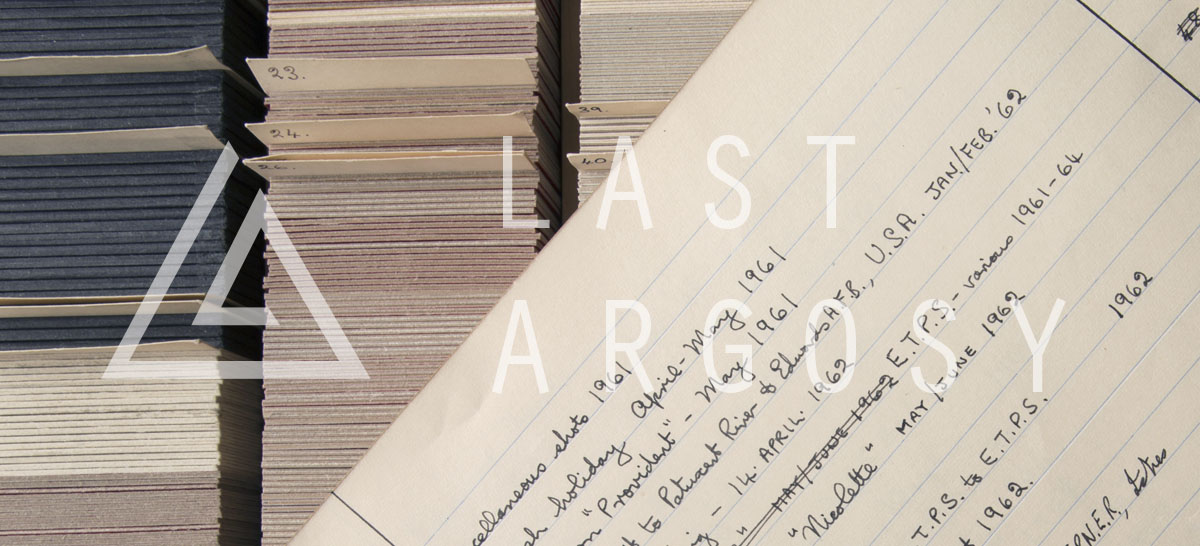 23.
24.
39
40
LAST
ARGOSY
cellaneous shots 1961
holiday April-May 1961
"Provident" - May 1961
to Patuxent River & Edwards A.F.B., U.S.A. JAN/FEB. '62
- 14. APRIL. 1962
MAY/JUNE 1962 E.T.P.S - various 1961-64
"Nicolette" MAY/JUNE 1962
T.P.S. to E.T.P.S. 1962
1962.